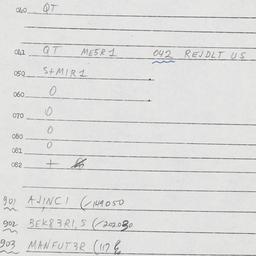 040 QT
041 QT MESR1 042 REJDLT US
050 S+MIR1
060 0
070 0
080 0
081 0
082 +
901 AJINCI (-149050
902 BEK83R1,S (-202030
903 MANFUT3R (117